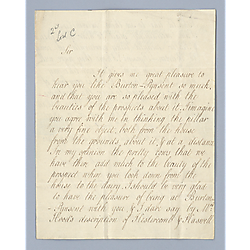 Sir
It gives me great pleasure to
hear you like Burton-Pynsent so much,
and that you are so pleased with the
beauties of the prospects about it. I imagine
you agree with me in thinking the pillar
a very fine object, both from the house
from the grounds, about it, & at a distance
In my opinion the pretty cows that we
have there add much to the beauty of the
prospect when you look down from the
house to the dairy. I should be very glad
to have the pleasure of being at Burton-
Pynsent with you & I dare say by Mrs
Hood's description of &